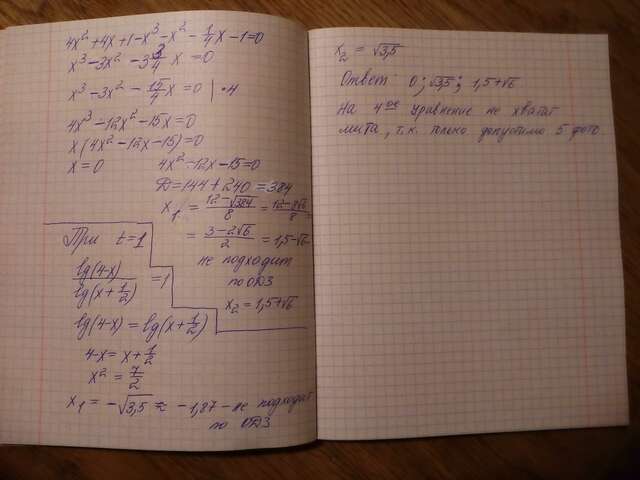 4x² + 4x + 1 - x³ - x² - 1/4 x - 1 = 0
x³ - 3x² - 3 3/4 x = 0
x³ - 3x² - 15/4 x = 0 | · 4
4x³ - 12x² - 15x = 0
x(4x² - 12x - 15) = 0
x = 0
4x² - 12x - 15 = 0
D = 144 + 240 = 384
x₁ = (12 - √384)/8 = (12 - 8√6)/8 =
= (3 - 2√6)/2 = 1,5 - √6
не подходит
по ОДЗ
x₂ = 1,5 + √6
При t = 1
lg(4-x)/lg(x + 1/2) = 1
lg(4-x) = lg(x + 1/2)
4 - x = x + 1/2
x² = 7/2
x₁ = -√3,5 ≈ -1,87 - не подходит
по ОДЗ
x₂ = √3,5
Ответ: 0; √3,5; 1,5 + √6
На 4ое уравнение не хватит
лимита, т.к. только допустимо 5 фото.